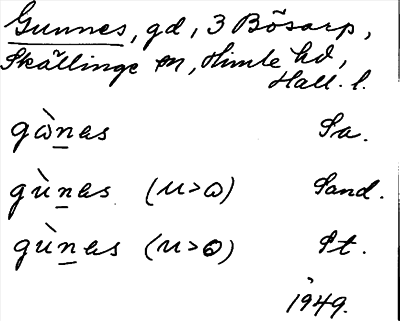 Gunnes, gd, 3 Bösarp,
Skällinge sn, Himle hd,
Hall. l.
gɷ̀n̲as Sa.
gùn̲as (u>ɷ) Sand.
gùn̲as (u>o) St.
1949.